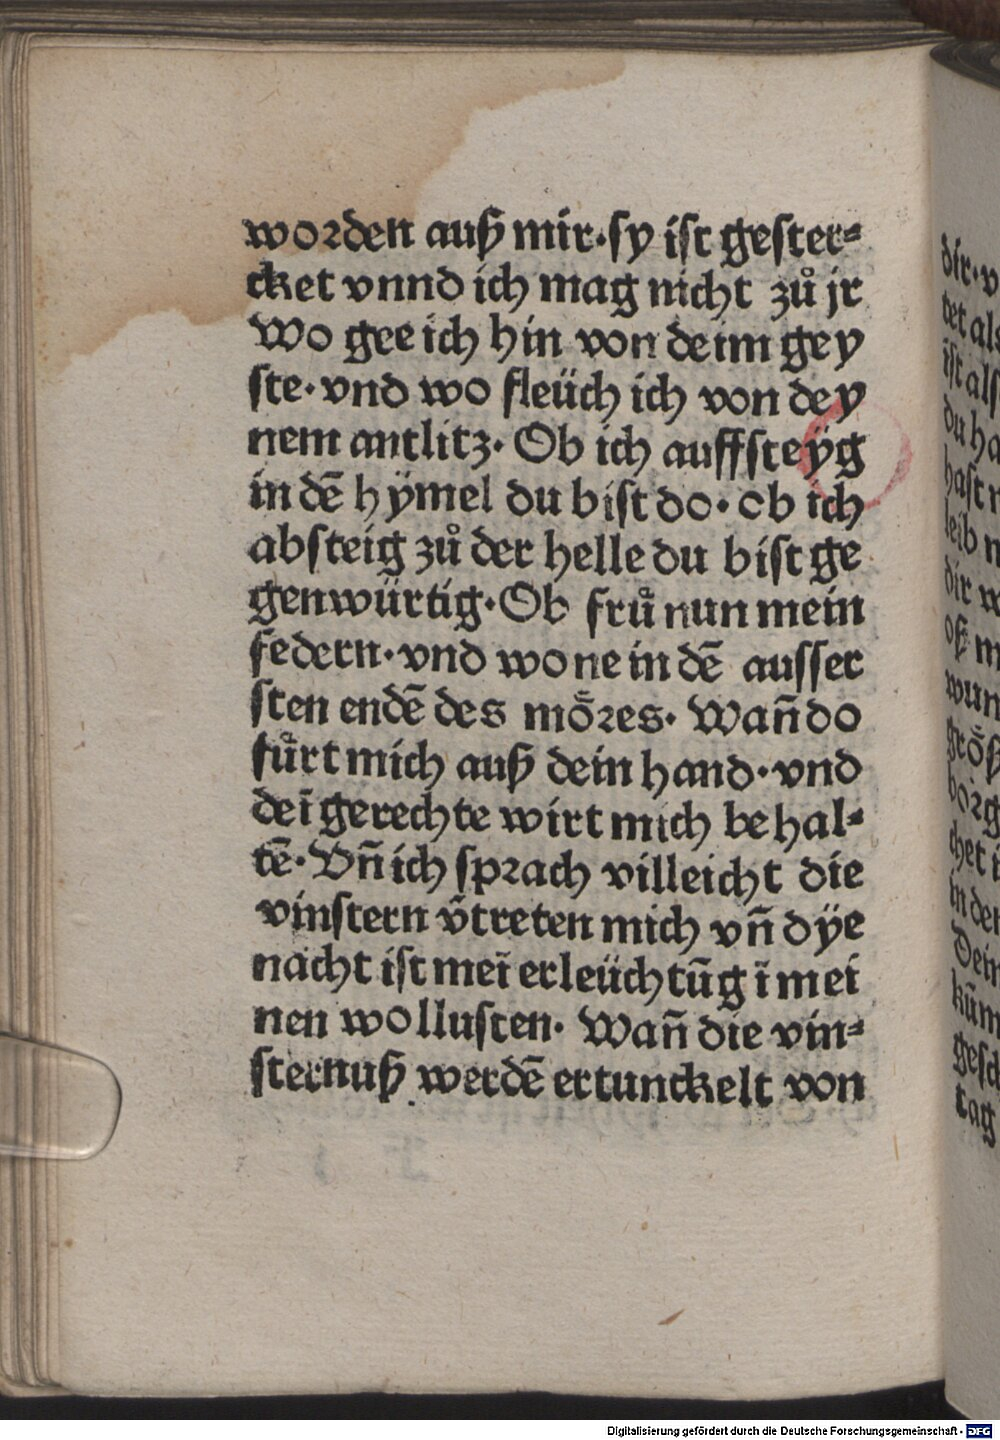 worden auß mir·sy ist gester⸗
cket vnnd ich mag nicht zů jr
Wo gee ich hin von deim gey
ste·vnd wo fleüch ich von dey
nem antlitz· Ob ich auffsteÿg
in dē hÿmel du bist do·ob ich
absteig zů der helle du bist ge
genwürtig·Ob frů nun mein
federn·vnd wone in dē ausser
sten endē des mo̊res· Wañ do
fůrt mich auß dein hand·vnd
deī gerechte wirt mich behal⸗
tē·Vñ ich sprach villeicht die
vinstern v̄treten mich vñ dÿe
nacht ist meī erleüchtūg ī mei
nen wollusten· Wañ die vin⸗
sternuß werdē ertunckelt von
dir·v
tet als
ist als
du ha
hast
leib
dir w
wun
borg
chet i
in der
Dein
kūm
gesch
tag
Digitalisierung gefördert durch die Deutsche Forschungsgemeinschaft - DFG